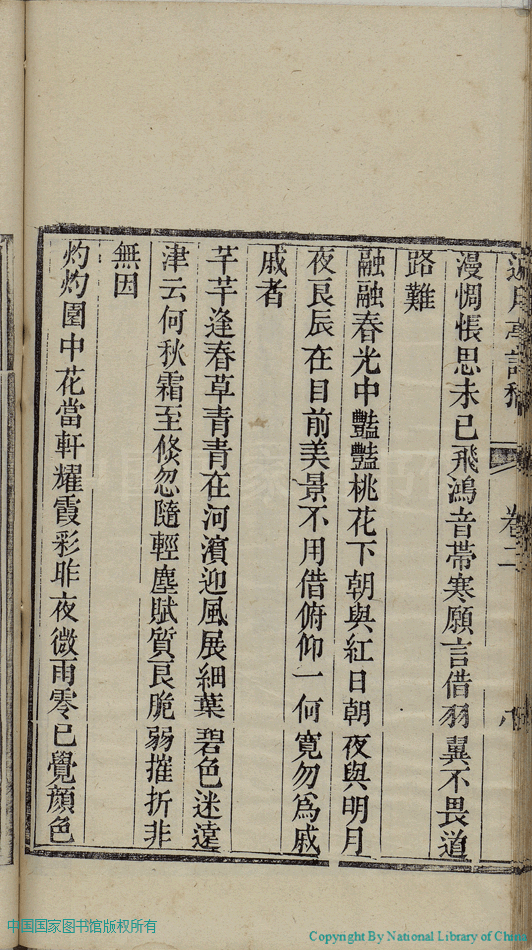 漫惆悵思未已飛鴻音帶寒願言借羽翼不畏道
路難
融融春光中豔豔桃花下朝與紅日朝夜與明月
夜良辰在目前美景不用借俯仰一何寬勿為戚
戚者
芊芊逢春草青青在河濱迎風展細葉碧色迷遠
津云何秋霜至倏忽隨輕塵賦質良脆弱摧折非
無因
灼灼園中花當軒耀霞彩昨夜微雨零已覺顏色
卷二
中国国家图书馆版权所有
Copyright By National Library of China